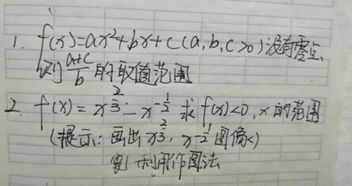 1. f(x)=ax²+bx+c (a,b,c>0)没有零点,
则 (a+c)/b 的取值范围
2. f(x)= x^(2/3) - x^(-1/2) 求 f(x)<0, x的范围
(提示:画出 x^(2/3), x^(-1/2) 图像<)
利用作图法